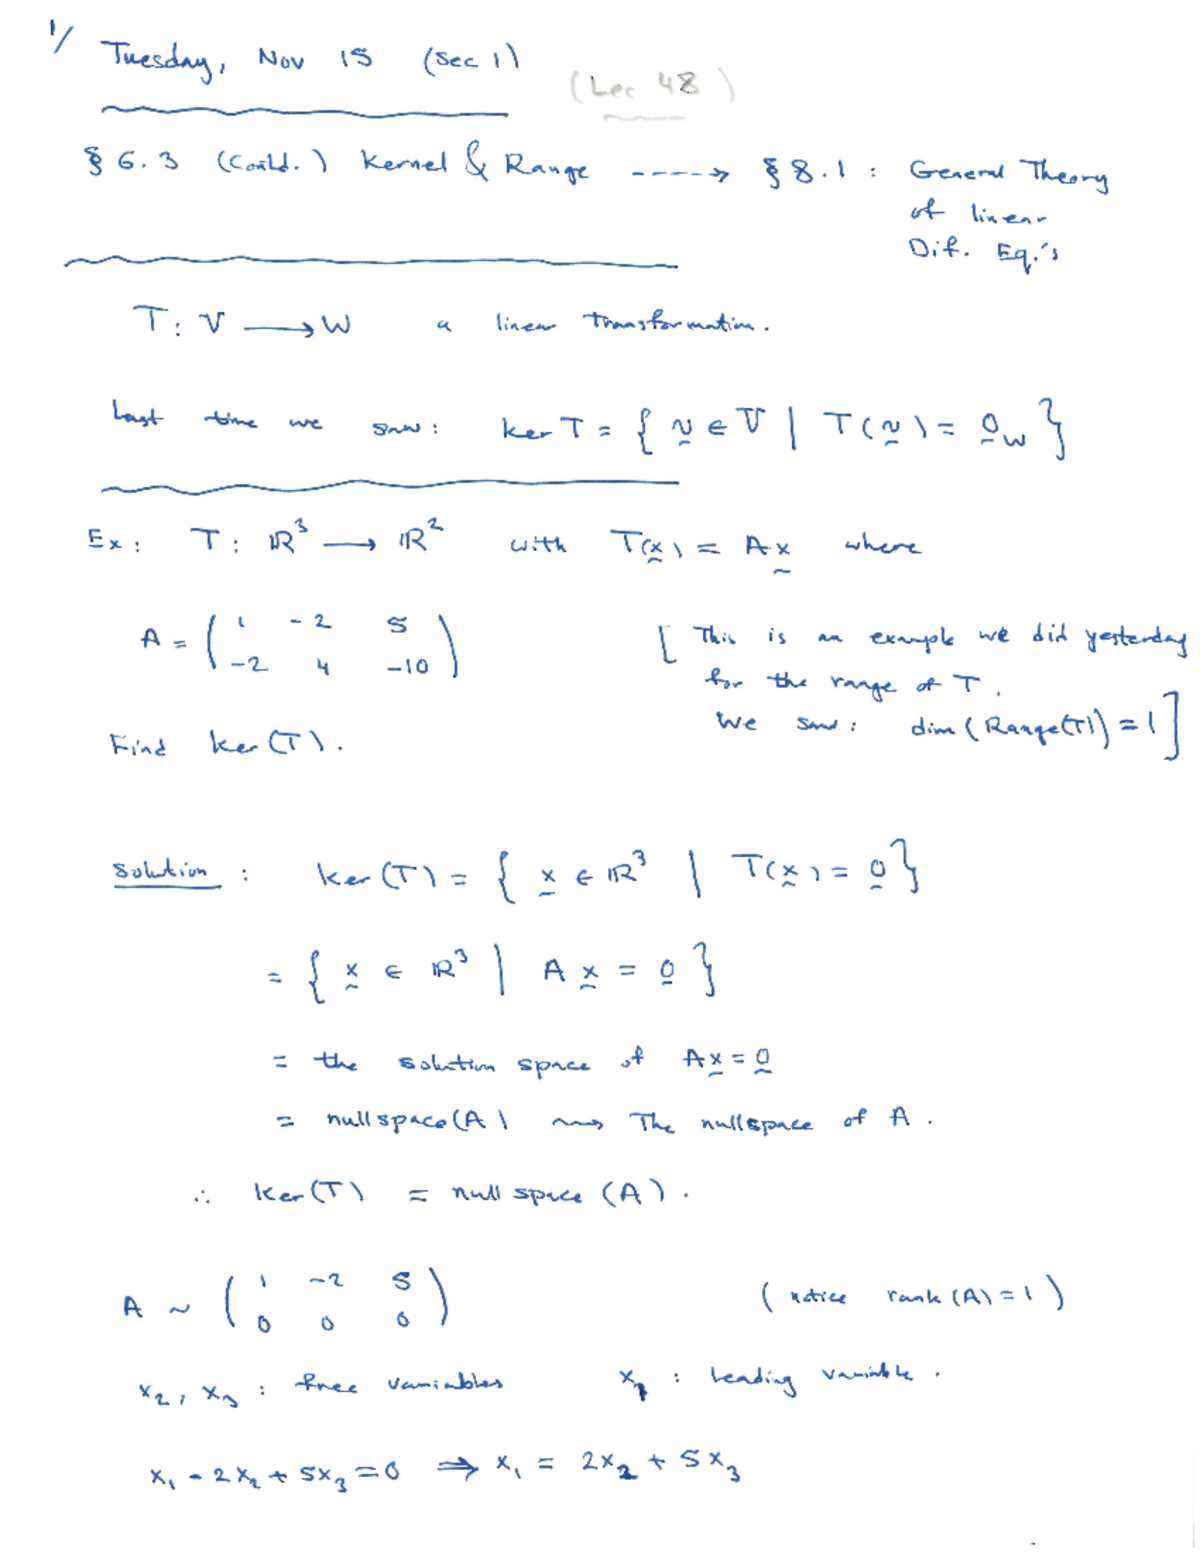 1/ Tuesday, Nov 15 (Sec 1)
(Lec 48)
§ 6.3 (Contd.) Kernel & Range ----> § 8.1 : General Theory
of linear
Dif. Eq.'s
T: V ⟶ W a linear transformation.
Last time we saw: ker T = { v ∈ V | T(v) = 0_W }
Ex: T: ℝ³ ⟶ ℝ² with T(x) = Ax where
A = ( 1 -2 5
-2 4 -10 )
[ This is an example we did yesterday
for the range of T.
We saw: dim (Range(T)) = 1 ]
Find ker(T).
Solution : ker(T) = { x ∈ ℝ³ | T(x) = 0 }
= { x ∈ ℝ³ | A x = 0 }
= the solution space of Ax = 0
= nullspace(A) ⇝ The nullspace of A.
∴ ker(T) = null space (A).
A ~ ( 1 -2 5
0 0 0 ) ( notice rank(A) = 1 )
x₂, x₃ : free variables x₁ : leading variable.
x₁ - 2x₂ + 5x₃ = 0 ⇒ x₁ = 2x₂ + 5x₃